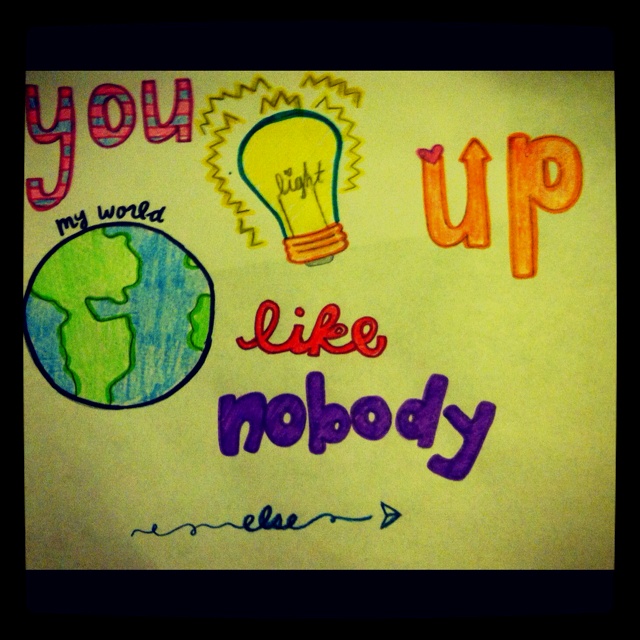 you light up
my world
like
nobody
else